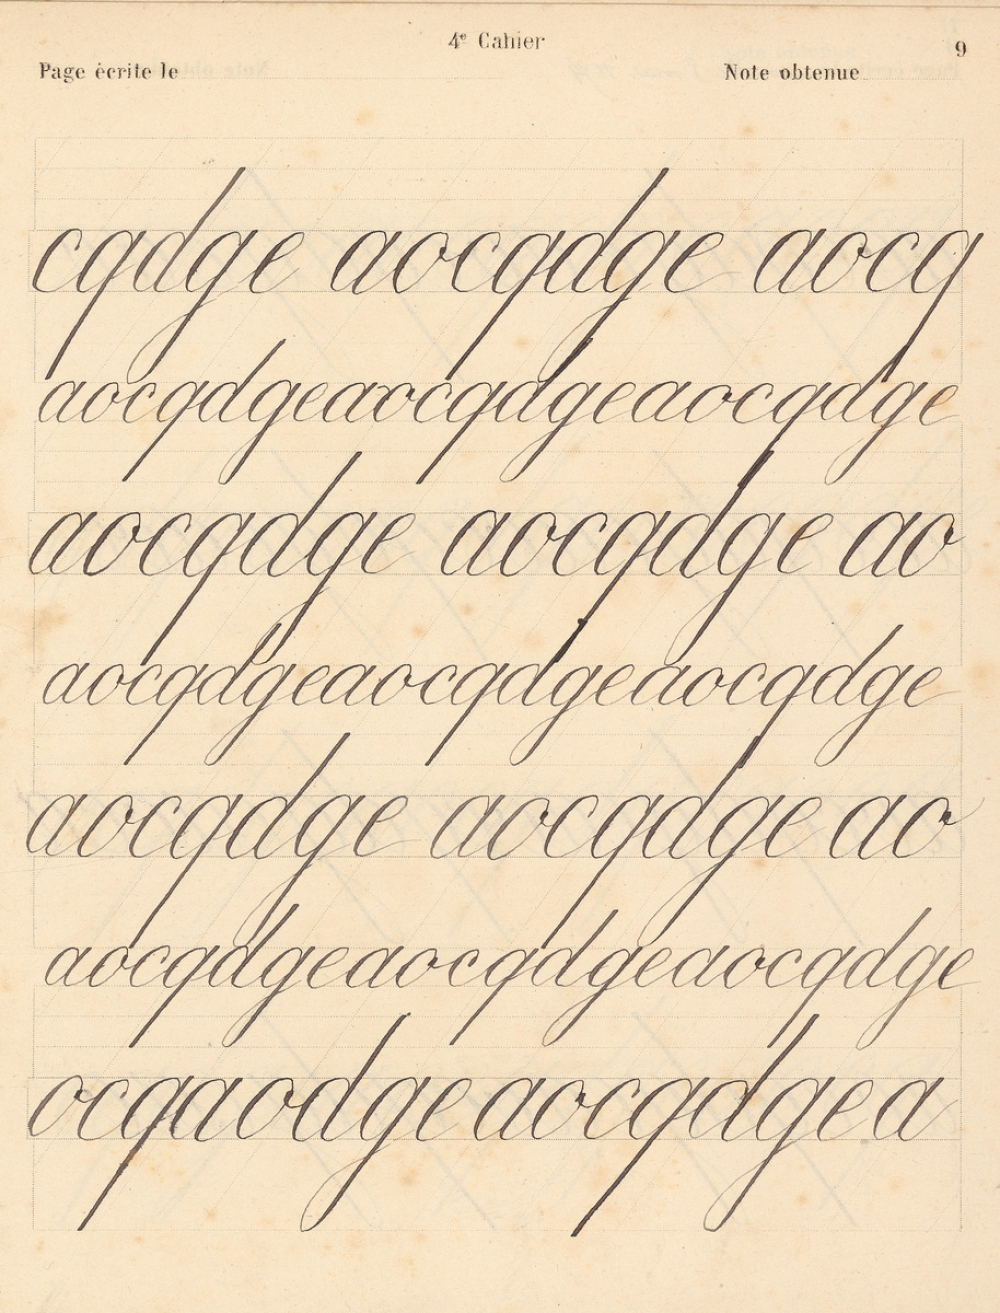 4e Cahier
9
Page écrite le
Note obtenue
cqdge aocqdge aocq
aocqdgeaocqdgeaocqdge
aocqdge aocqdge ao
aocqdgeaocqdgeaocqdge
aocqdge aocqdge ao
aocqdgeaocqdgeaocqdge
ocqaodgeaocqdgea